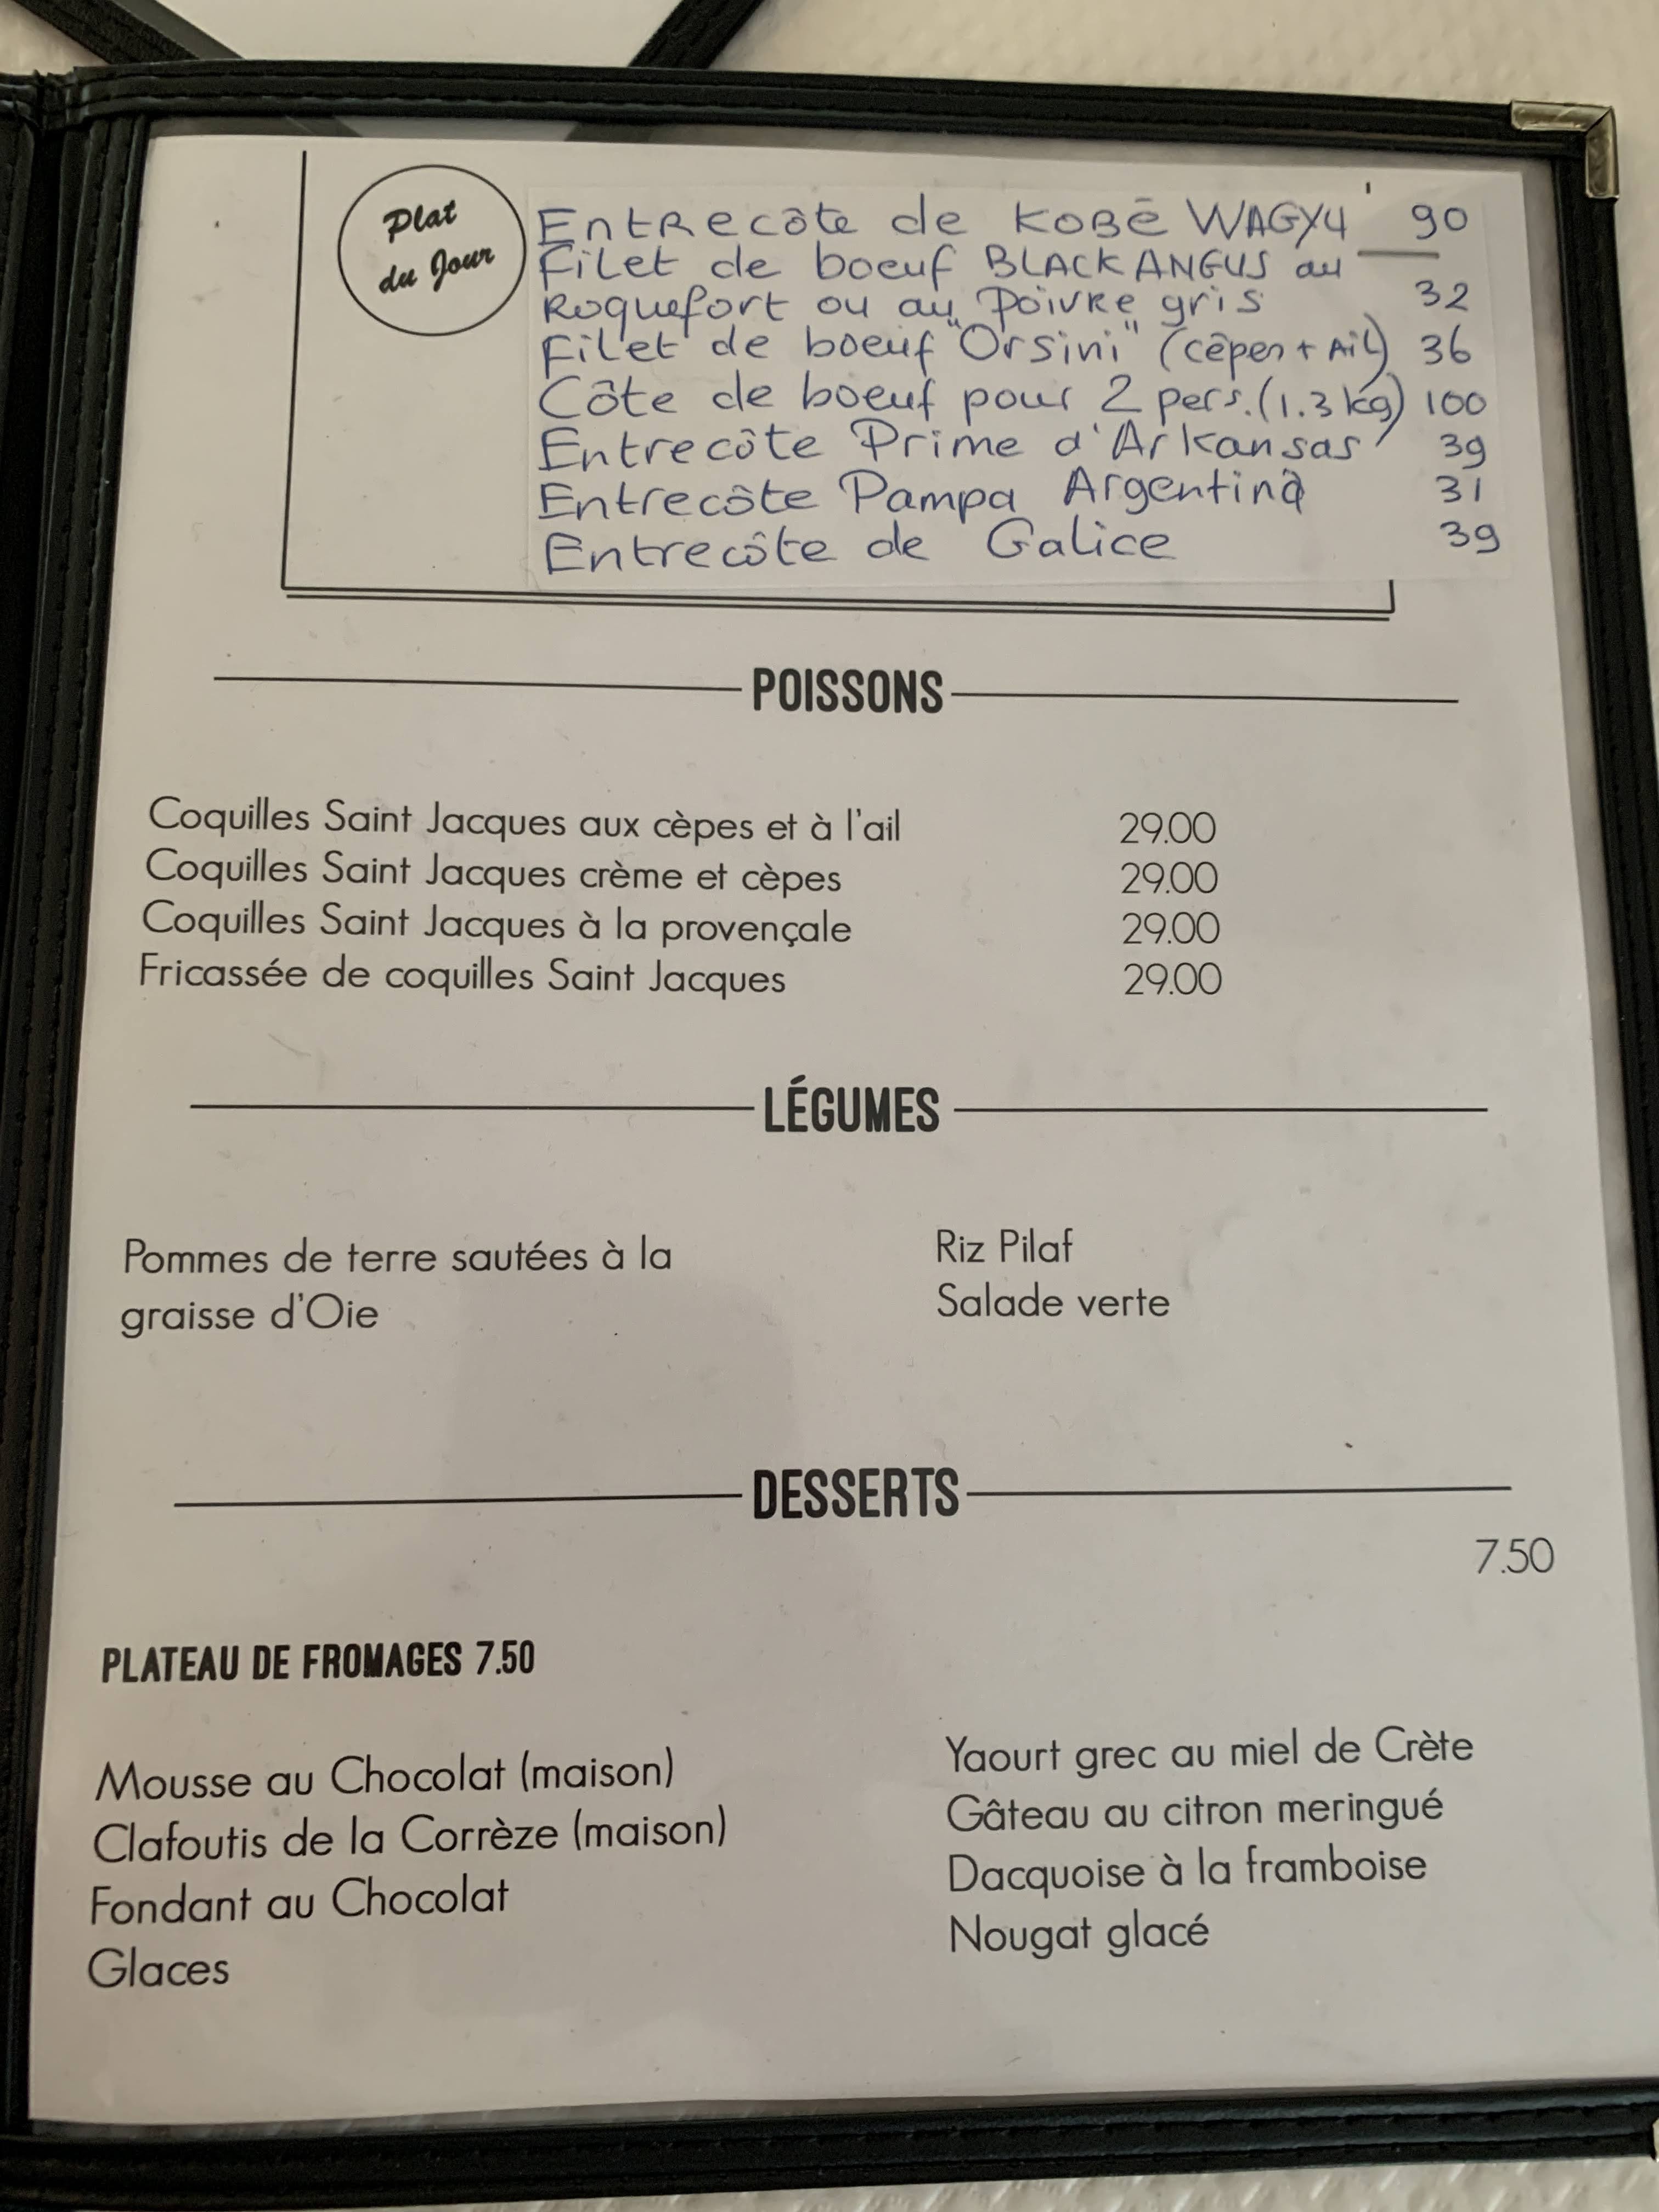 Plat
du Jour
Entrecôte de KOBÉ WAGYU 90
Filet de boeuf BLACK ANGUS au
Roquefort ou au Poivre gris 32
Filet de boeuf "Orsini" (cêpes + Ail) 36
Côte de boeuf pour 2 pers. (1.3 kg) 100
Entrecôte Prime d'Arkansas 39
Entrecôte Pampa Argentina 31
Entrecôte de Galice 39
POISSONS
Coquilles Saint Jacques aux cèpes et à l'ail 29.00
Coquilles Saint Jacques crème et cèpes 29.00
Coquilles Saint Jacques à la provençale 29.00
Fricassée de coquilles Saint Jacques 29.00
LÉGUMES
Pommes de terre sautées à la
graisse d'Oie
Riz Pilaf
Salade verte
DESSERTS
7.50
PLATEAU DE FROMAGES 7.50
Mousse au Chocolat (maison)
Clafoutis de la Corrèze (maison)
Fondant au Chocolat
Glaces
Yaourt grec au miel de Crète
Gâteau au citron meringué
Dacquoise à la framboise
Nougat glacé